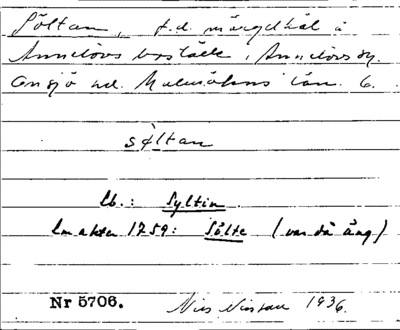 Söltan, f.d. märgelhål å
Annelövs boställe, Annelövs sn.
Onsjö hd. Malmöhus län. 6.
sǿltan
lb.: Syltin
Lm akter 1759: Sölte (var då äng)
Nr 5706. Nils Nilsson 1936.